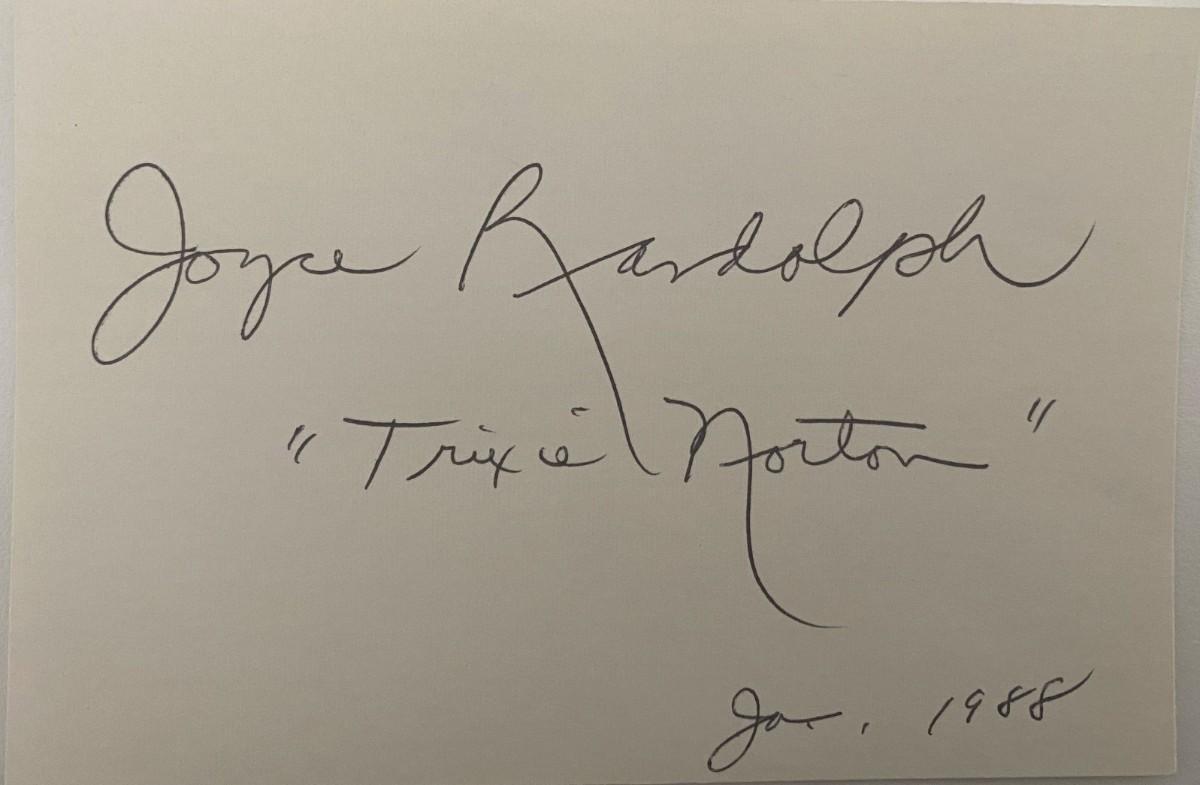 Joyce Randolph
"Trixie Norton"
Jan. 1988